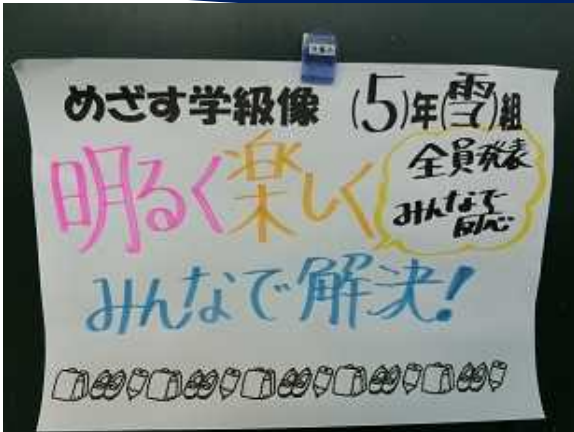 めざす学級像 (5)年(雪)組
明るく楽しく
全員発表
みんなで
反応
みんなで解決!